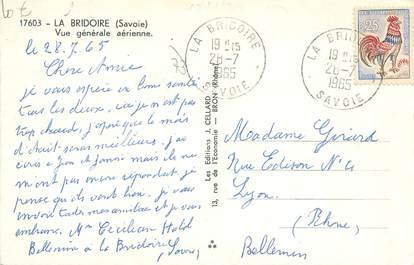 17603 - LA BRIDOIRE (Savoie)
Vue générale aérienne.
le 28.7.65
Chère Amie
je vous espère en bonne santé
tous les deux, ici je n'ont pas
trop chaude, j'espère que le mois
d'Août sera meilleurs. J'ai
écris a et Jeanni mais ils ne
m'ont pas encore répondut, je
pense qu'ils vont bien. je vous
envoie mes amitiés et je vous
embrasse. Mme Hotel
Bellemin à la Bridoire (Savoie)
Les Editions J. CELLARD
13, rue de l'Economie - BRON (Rhône)
LA BRIDOIRE
19H15
28-7
1965
SAVOIE
LA BRIDOIRE
19H15
28-7
1965
SAVOIE
0,25
Madame Girard
Rue Edison N° 4
Lyon.
(Rhône)
Bellemin